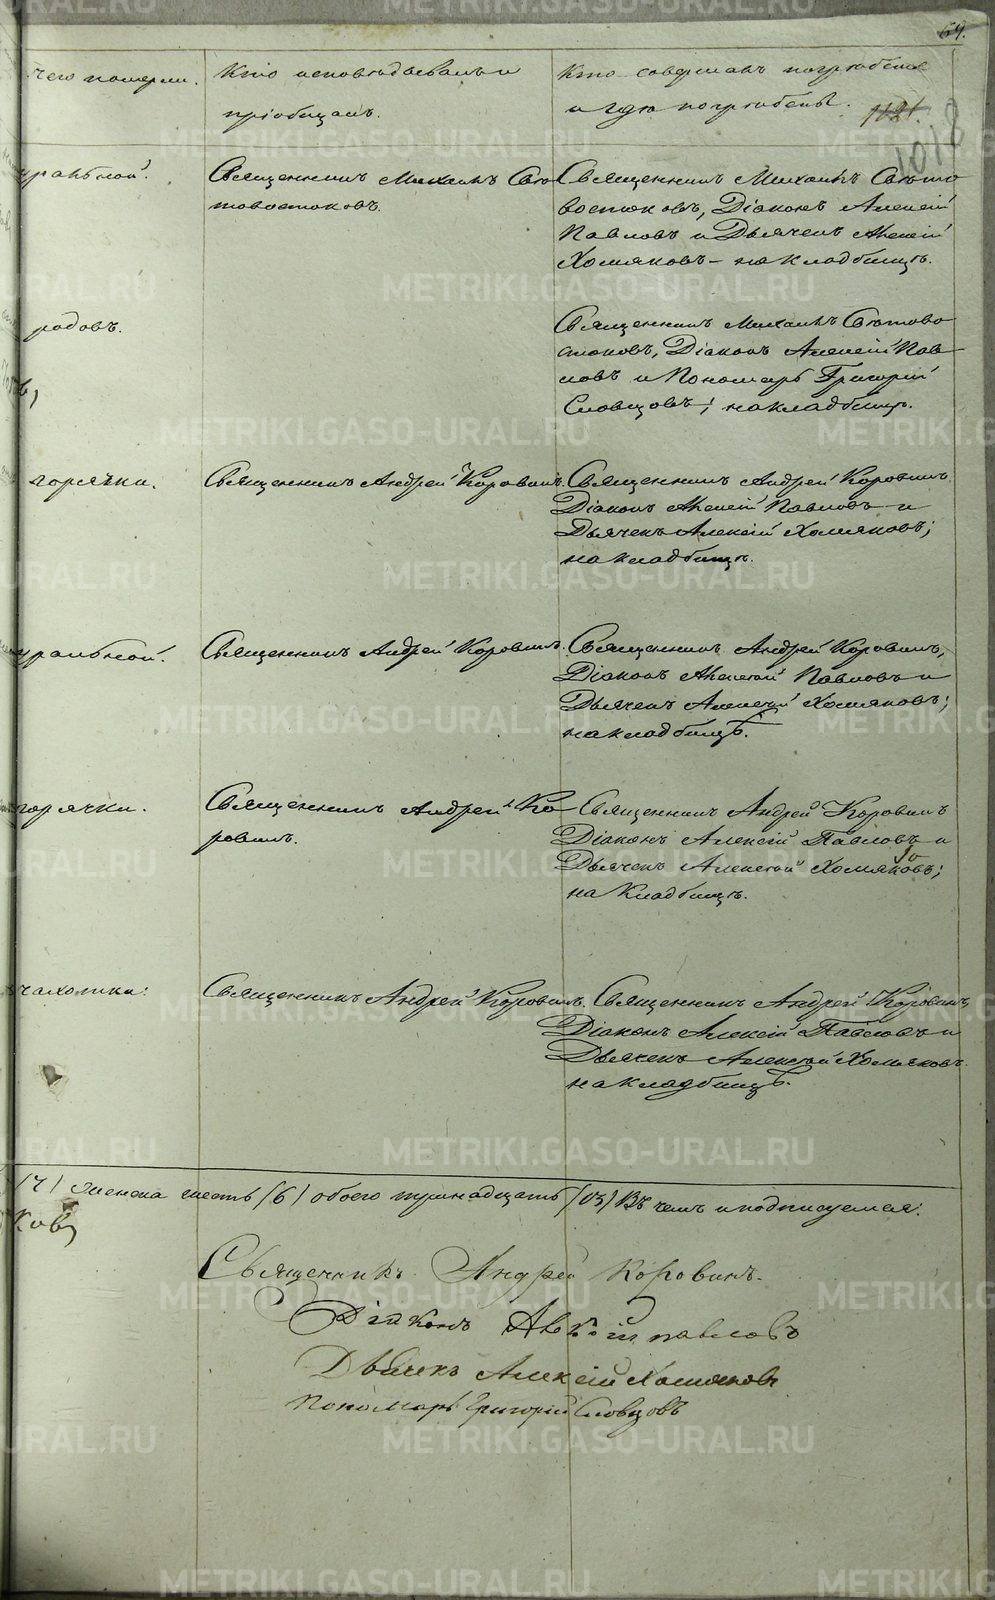 69.
чего померли.
Кто исповѣдывалъ и
пріобщалъ.
Кто совершалъ погребеніе
и гдѣ погребены.
1121.
1018
уральной.
Священникъ Михаилъ Свѣ
товостоковъ.
Священникъ Михаилъ Свѣто
востоковъ, Діаконъ Алексій
Павловъ и Дьячекъ Алексій
Хомяковъ – на кладбищѣ.
родовъ.
Священникъ Михаилъ Свѣтово
стоковъ, Діаконъ Алексій Пав
ловъ и Пономарь Григорій
Словцовъ; на кладбищѣ.
горячки.
Священникъ Андрей Коровинъ.
Священникъ Андрей Коровинъ
Діаконъ Алексій Павловъ и
Дьячекъ Алексій Хомяковъ;
на кладбищѣ.
уральной.
Священникъ Андрей Коровинъ.
Священникъ Андрей Коровинъ,
Діаконъ Алексѣй Павловъ и
Дьячекъ Алексѣй Хомяковъ;
на кладбищѣ.
горячки.
Священникъ Андрей Ко
ровинъ.
Священникъ Андрей Коровинъ
Діаконъ Алексій Павловъ и
Дьячекъ Алексѣй Хомяковъ;
на Кладбищѣ.
чахотки:
Священникъ Андрей Коровинъ.
Священникъ Андрей Коровинъ
Діаконъ Алексій Павловъ и
Дьячекъ Алексѣй Хомяковъ.
на кладбищѣ.
(7) женска шесть (6) обоего тринадцать (13) Въ чемъ и подписуемся:
Священникъ Андрей Коровинъ.
Діаконъ Алексій Павловъ
Дьячекъ Алексій Хомяковъ
Пономарь Григорій Словцовъ
METRIKI.GASO-URAL.RU